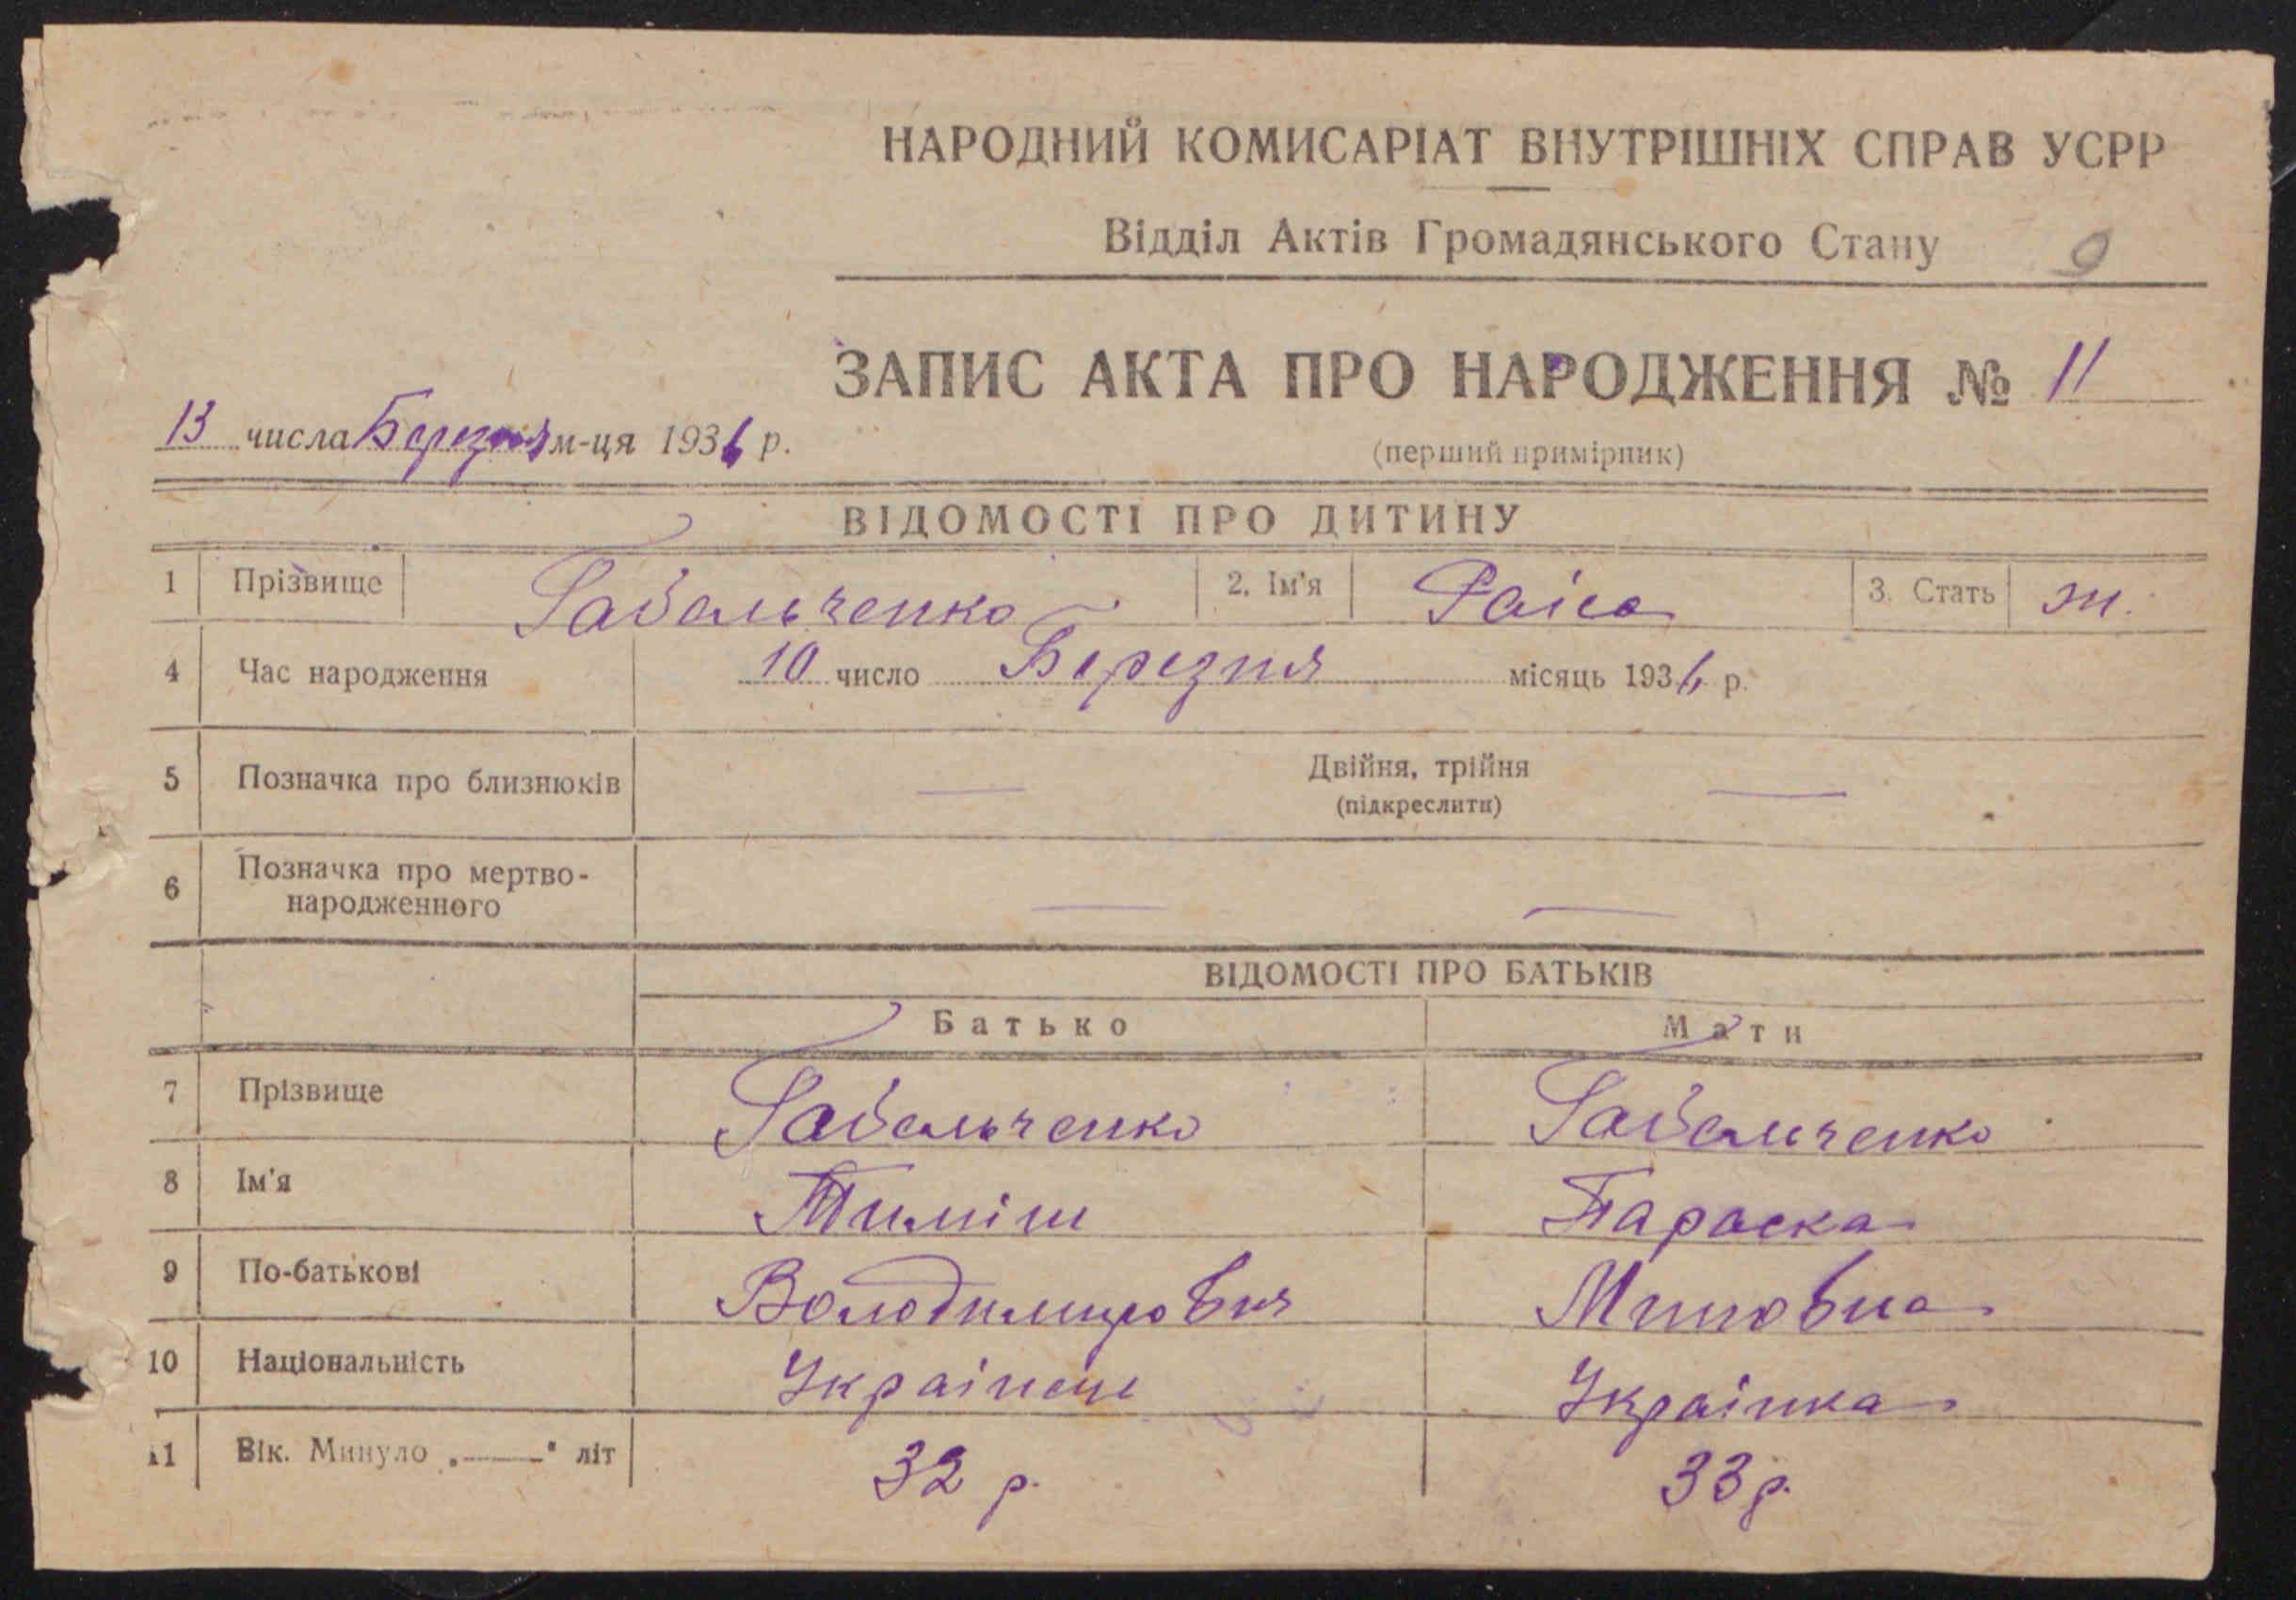 НАРОДНИЙ КОМИСАРІАТ ВНУТРІШНІХ СПРАВ УСРР
Відділ Актів Громадянського Стану 9
ЗАПИС АКТА ПРО НАРОДЖЕННЯ № 11
13 числа Березня м-ця 1936 р.
(перший примірник)
ВІДОМОСТІ ПРО ДИТИНУ
1 Прізвище 2. Ім'я Раіса 3. Стать ж.
4 Час народження 10 число Березня місяць 1936 р.
5 Позначка про близнюків Двійня, трійня
(підкреслити)
6 Позначка про мертво-
народженного
ВІДОМОСТІ ПРО БАТЬКІВ
Батько Мати
7 Прізвище
8 Ім'я Тиміш Параска
9 По-батькові Володимирович
10 Національність Українець Українка
11 Вік. Минуло „——" літ 32 р. 33 р.